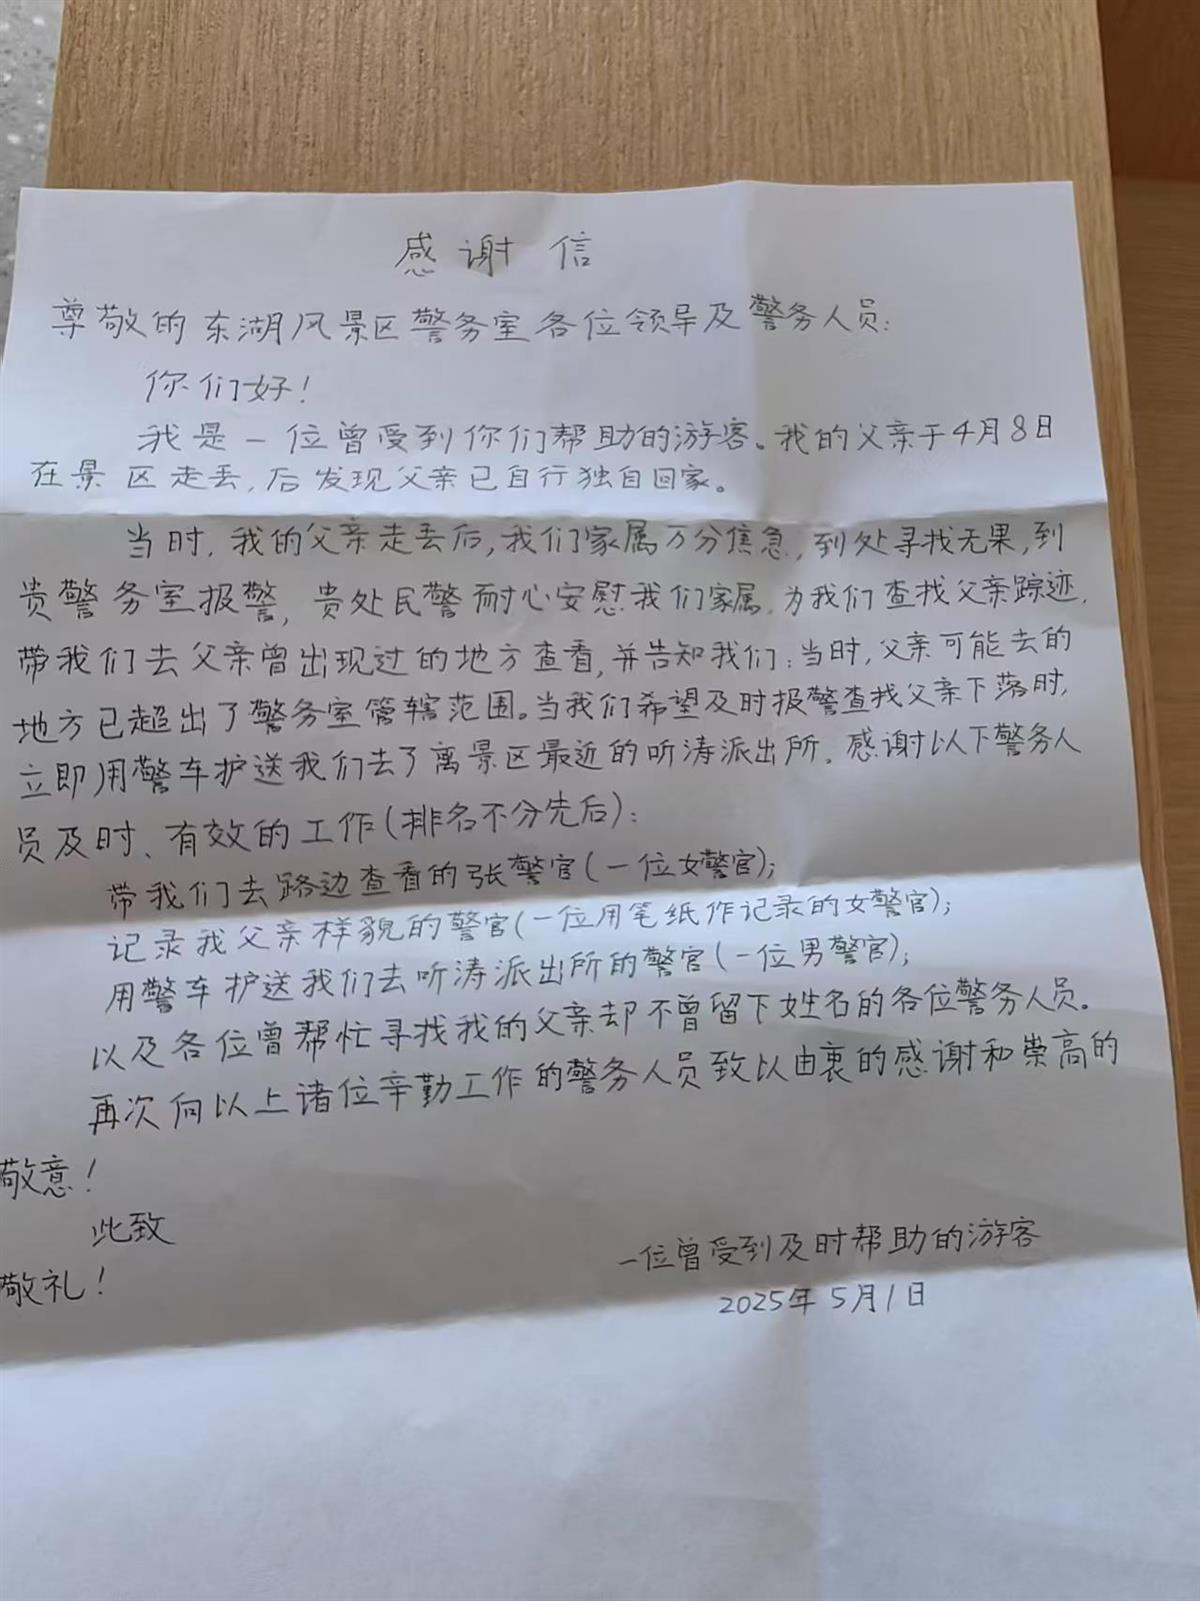 感谢信
尊敬的东湖风景区警务室各位领导及警务人员:
你们好!
我是一位曾受到你们帮助的游客。我的父亲于4月8日
在景区走丢,后发现父亲已自行独自回家。
当时,我的父亲走丢后,我们家属万分焦急,到处寻找无果,到
贵警务室报警,贵处民警耐心安慰我们家属,为我们查找父亲踪迹,
带我们去父亲曾出现过的地方查看,并告知我们:当时,父亲可能去的
地方已超出了警务室管辖范围。当我们希望及时报警查找父亲下落时,
立即用警车护送我们去了离景区最近的听涛派出所。感谢以下警务人
员及时、有效的工作(排名不分先后):
带我们去路边查看的张警官(一位女警官);
记录我父亲样貌的警官(一位用笔纸作记录的女警官);
用警车护送我们去听涛派出所的警官(一位男警官);
以及各位曾帮忙寻找我的父亲却不曾留下姓名的各位警务人员。
再次向以上诸位辛勤工作的警务人员致以由衷的感谢和崇高的
敬意!
此致
敬礼!
一位曾受到及时帮助的游客
2025年5月1日